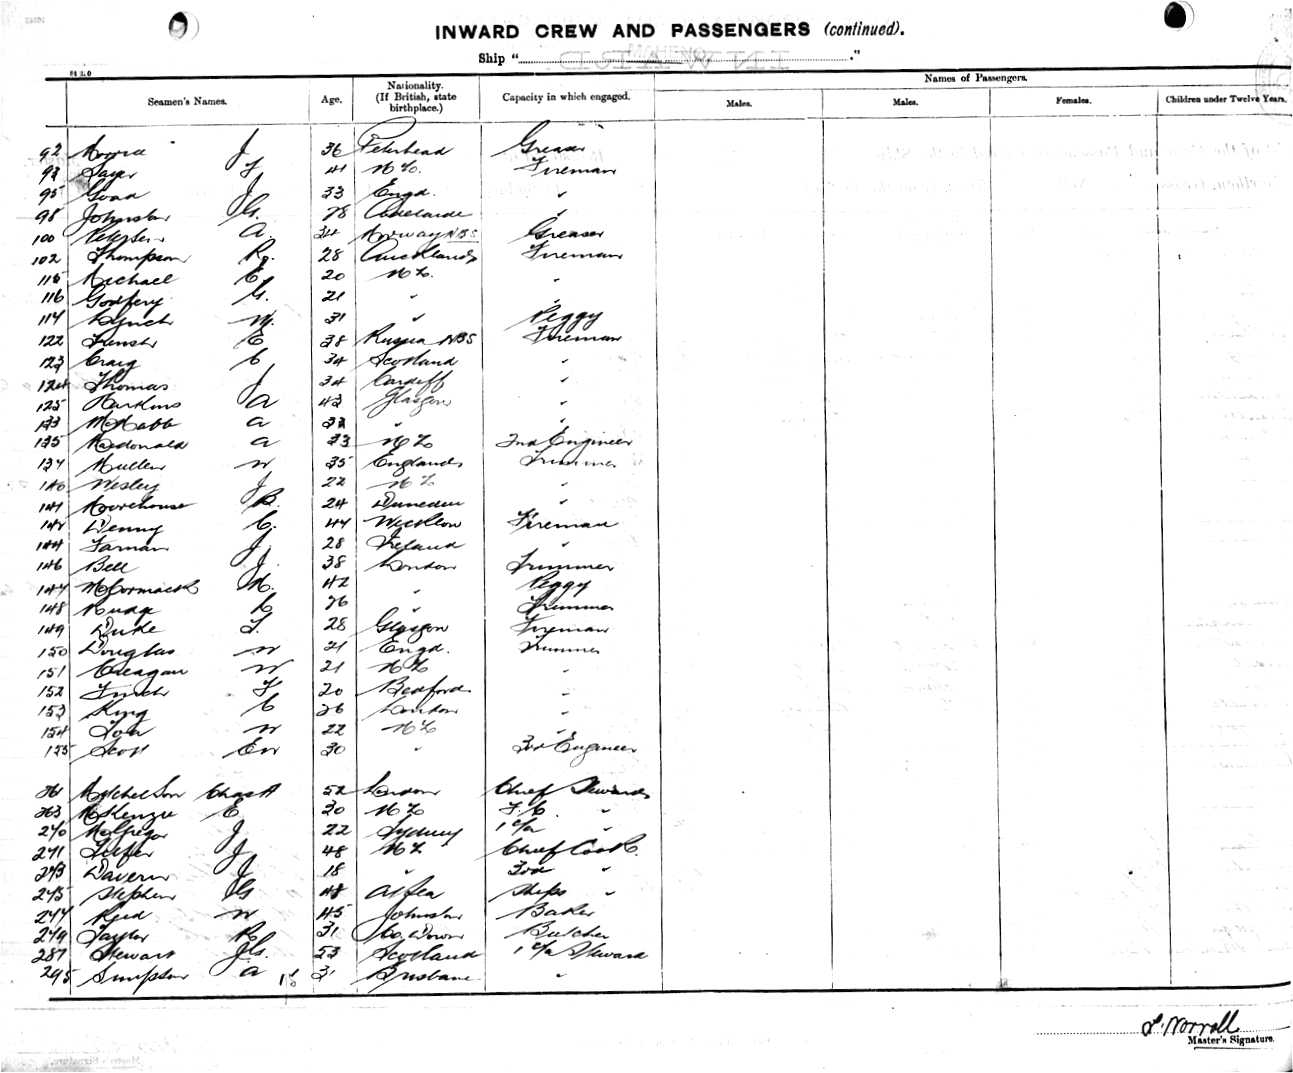 INWARD CREW AND PASSENGERS (continued).
Ship " "
Seamen's Names. Age. Nationality. (If British, state birthplace.) Capacity in which engaged. Names of Passengers.
Males. Males. Females. Children under Twelve Years.
92 J 36 Peterhead Greaser
93 F 41 N Z. Fireman
95 J 33 Engd. "
98 Johnston G. 28 Adelaide "
100 Petersen A. 34 Norway NBS Greaser
102 Thompson R. 28 Auckland Fireman
115 Michael C 20 N Z. "
116 Godfery G. 21 "
117 Lynch M. 31 " Peggy
122 E 38 Russia NBS Fireman
123 Craig C 34 Scotland "
124 Thomas J 34 Cardiff "
125 Harkins A 43 Glasgow "
133 McNabb A 32 "
135 Macdonald A 33 N Z 2nd Engineer
137 Mullen W 35 England Trimmer
140 Wesley J 22 N Z "
141 Moorehouse B. 24 Dunedin "
142 Denny C. 44 Fireman
144 Farnan J 28 Ireland "
146 Bell J. 38 London Trimmer
147 McCormack M. 42 Peggy
148 Mudge L 26 " Trimmer
149 Duke T. 28 Glasgow Fireman
150 Douglas W 21 Engd. Trimmer
151 Creagan W 21 N Z "
152 Finch F 20 Bedford "
153 King C 26 London "
154 W 22 N Z "
155 Scott E W 30 " 3rd Engineer
261 Mitchelson Chas A 52 London Chief Steward
263 McKenzie E 30 N Z F. C. "
270 McGregor J 22 Sydney 1 c/a "
271 Telfer J 48 N Z Chief Cook
273 Davern J 18 " 3rd "
275 Stephens G 48 At Sea Ships "
277 Reid W 45 Baker
279 Taylor R 31 Co. Down Butcher
287 Stewart J G. 53 Scotland 1 c/a Steward
295 Simpson A 31 Brisbane "
Worrall
Master's Signature.